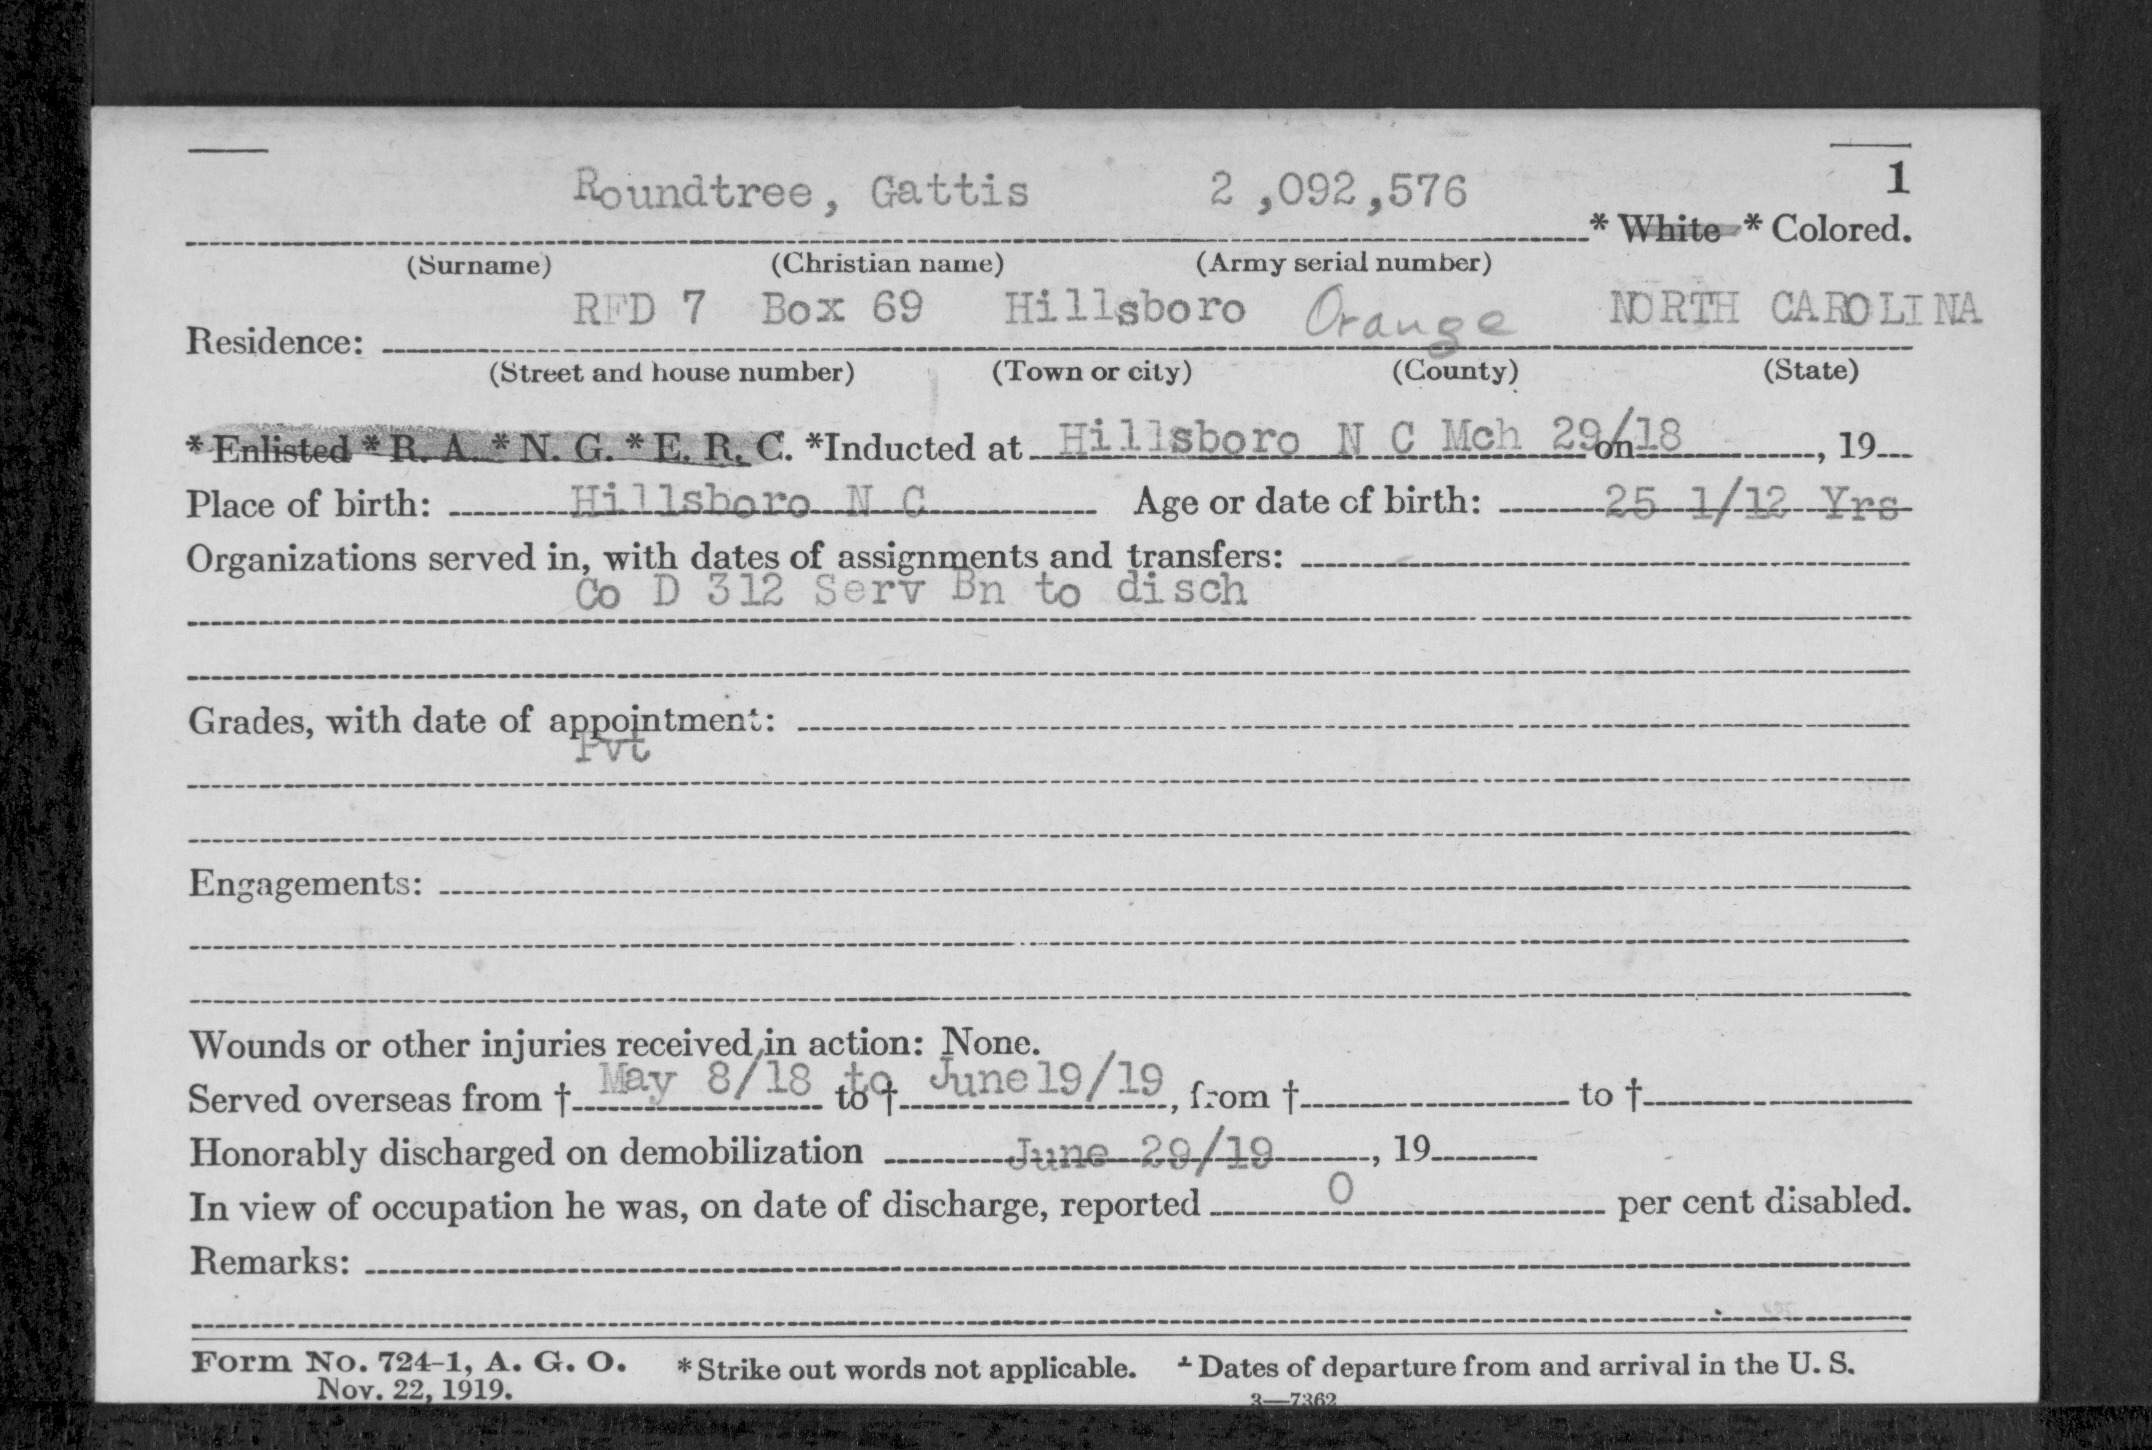 1
Roundtree, Gattis 2,092,576 * White * Colored.
(Surname) (Christian name) (Army serial number)
Residence: RFD 7 Box 69 Hillsboro Orange NORTH CAROLINA
(Street and house number) (Town or city) (County) (State)
* Enlisted * R. A. * N. G. * E. R. C. *Inducted at Hillsboro N C Mch 29/18 on , 19
Place of birth: Hillsboro N C Age or date of birth: 25 1/12 Yrs
Organizations served in, with dates of assignments and transfers:
Co D 312 Serv Bn to disch
Grades, with date of appointment:
Pvt
Engagements:
Wounds or other injuries received in action: None.
Served overseas from † May 8/18 to to † June 19/19, from † to †
Honorably discharged on demobilization June 29/19, 19
In view of occupation he was, on date of discharge, reported 0 per cent disabled.
Remarks:
Form No. 724-1, A. G. O. * Strike out words not applicable. † Dates of departure from and arrival in the U. S.
Nov. 22, 1919. 3—7362